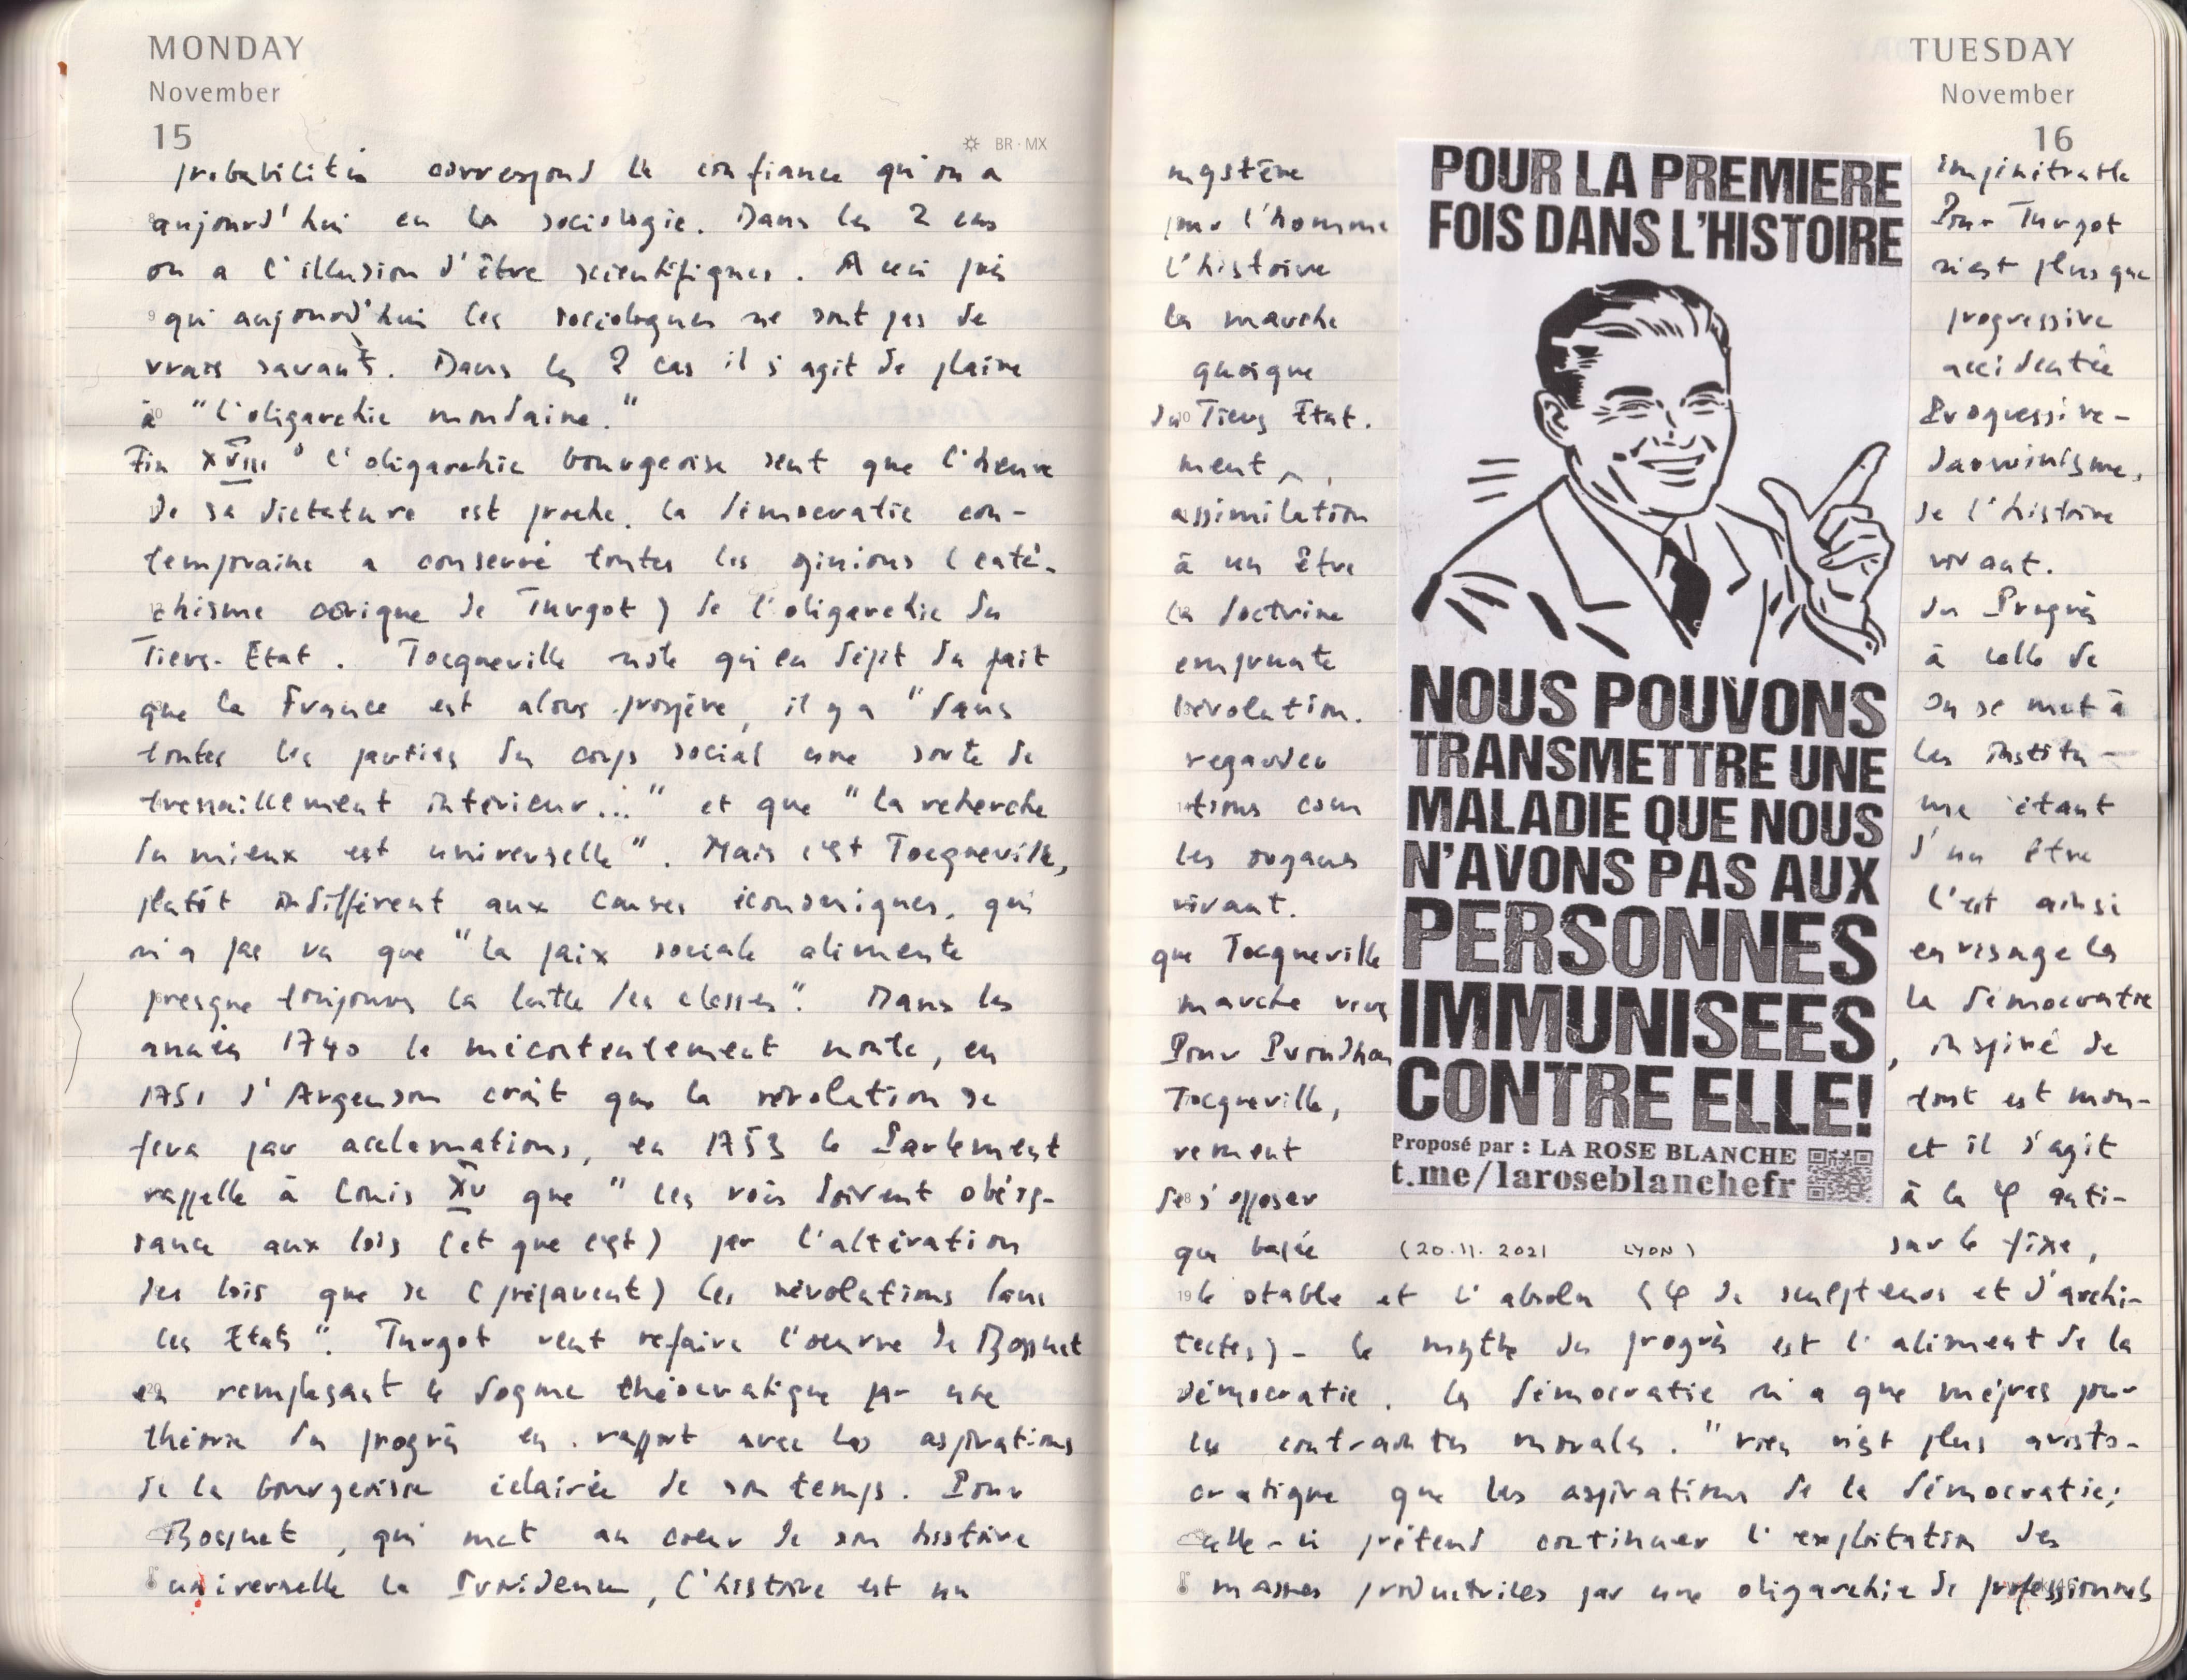 MONDAY
November
15
BR · MX
probabilités correspond la confiance qu'on a
aujourd'hui en la sociologie. Dans les 2 cas
on a l'illusion d'être scientifiques. A ceci près
qu'aujourd'hui les sociologues ne sont pas de
vrais savants. Dans les 2 cas il s'agit de plaire
à "l'oligarchie mondaine."
Fin XVIII° l'oligarchie bourgeoise sent que l'heure
de sa dictature est proche. La démocratie con-
temporaine a conservé toutes les opinions (caté-
chisme civique de Turgot) de l'oligarchie du
Tiers-Etat. Tocqueville note qu'en dépit du fait
que la France est alors prospère, il y a "dans
toutes les parties du corps social une sorte de
tressaillement intérieur..." et que "la recherche
du mieux est universelle". Mais c'est Tocqueville,
plutôt indifférent aux causes économiques, qui
n'a pas vu que "la paix sociale alimente
presque toujours la lutte des classes". Dans les
années 1740 le mécontentement monte, en
1751 d'Argenson croit que la révolution se
fera par acclamations, en 1753 le Parlement
rappelle à Louis XV que "les rois doivent obéis-
sance aux lois (et que c'est) par l'altération
des lois que se (préparent) les révolutions dans
les Etats". Turgot veut refaire l'oeuvre de Bossuet
en remplaçant le dogme théocratique par une
théorie du progrès en rapport avec les aspirations
de la bourgeoisie éclairée de son temps. Pour
Bossuet, qui met au coeur de son histoire
universelle la Providence, l'histoire est un
TUESDAY
November
16
mystère impénétrable
pour l'homme Pour Turgot
l'histoire n'est plus que
la marche progressive
quoique accidentée
du Tiers Etat. Progressive-
ment, darwinisme,
assimilation de l'histoire
à un être vivant.
La doctrine du Progrès
emprunte à celle de
l'évolution. On se met à
regarder les institu-
tions com me étant
les organes d'un être
vivant. C'est ainsi
que Tocqueville envisage la
marche vers la démocratie
Pour Proudhon, inspiré de
Tocqueville, tout est mou-
vement et il s'agit
de s'opposer à la φ anti-
que basée sur le fixe,
POUR LA PREMIERE
FOIS DANS L'HISTOIRE
NOUS POUVONS
TRANSMETTRE UNE
MALADIE QUE NOUS
N'AVONS PAS AUX
PERSONNES
IMMUNISEES
CONTRE ELLE!
Proposé par : LA ROSE BLANCHE
t.me/laroseblanchefr
(20.11.2021 LYON)
le stable et l'absolu (φ de sculpteurs et d'archi-
tectes) - le mythe du progrès est l'aliment de la
démocratie. La démocratie n'a que mépris pour
les contraintes morales. "rien n'est plus aristo-
cratique que les aspirations de la démocratie;
celle-ci prétend continuer l'exploitation des
masses productrices par une oligarchie de professionnels